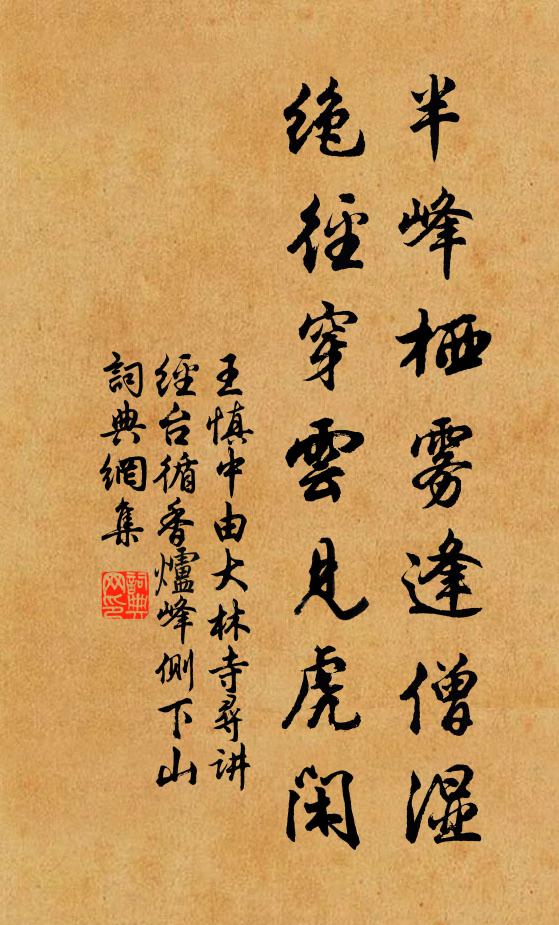 半峰栖雾逢僧湿
绝径穿雲見虎閑
王慎中由大林寺尋讲
經台循香爐峰側下山
詞典網集
詞典网印